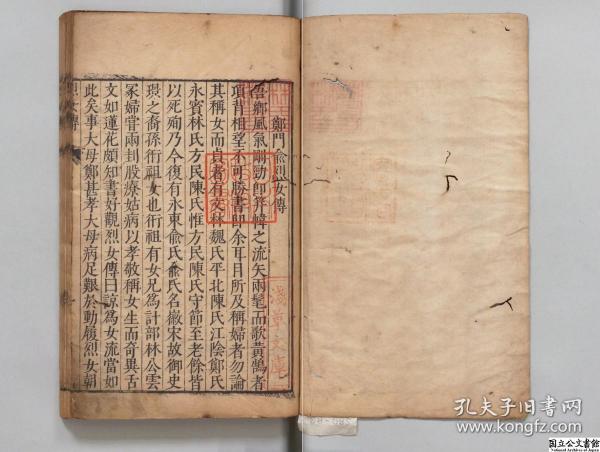 鄭門俞烈女傳
吾鄉風氣剛勁即笄幃之流矢兩髦而歌黃鵠者
項背相望不可勝書即余耳目所及稱婦者勿論
其稱女而貞者有文林魏氏平北陳氏江陰鄭氏
永賓林氏方民陳氏惟方民陳氏守節至老餘皆
以死殉乃今復有永東俞氏俞氏名徽宋故御史
之裔孫衍祖女也衍祖有女兄為計部林公雲
冢婦嘗兩刲股療姑病以孝敬稱女生而奇異舌
文如蓮花頗知書好觀烈女傳曰諒為女流當如
此矣事大母鄭甚孝大母病足艱於動履烈女朝
烈女傳
淺草文庫
孔夫子旧书网
www.kongfz.com
国立公文書館
National Archives of Japan